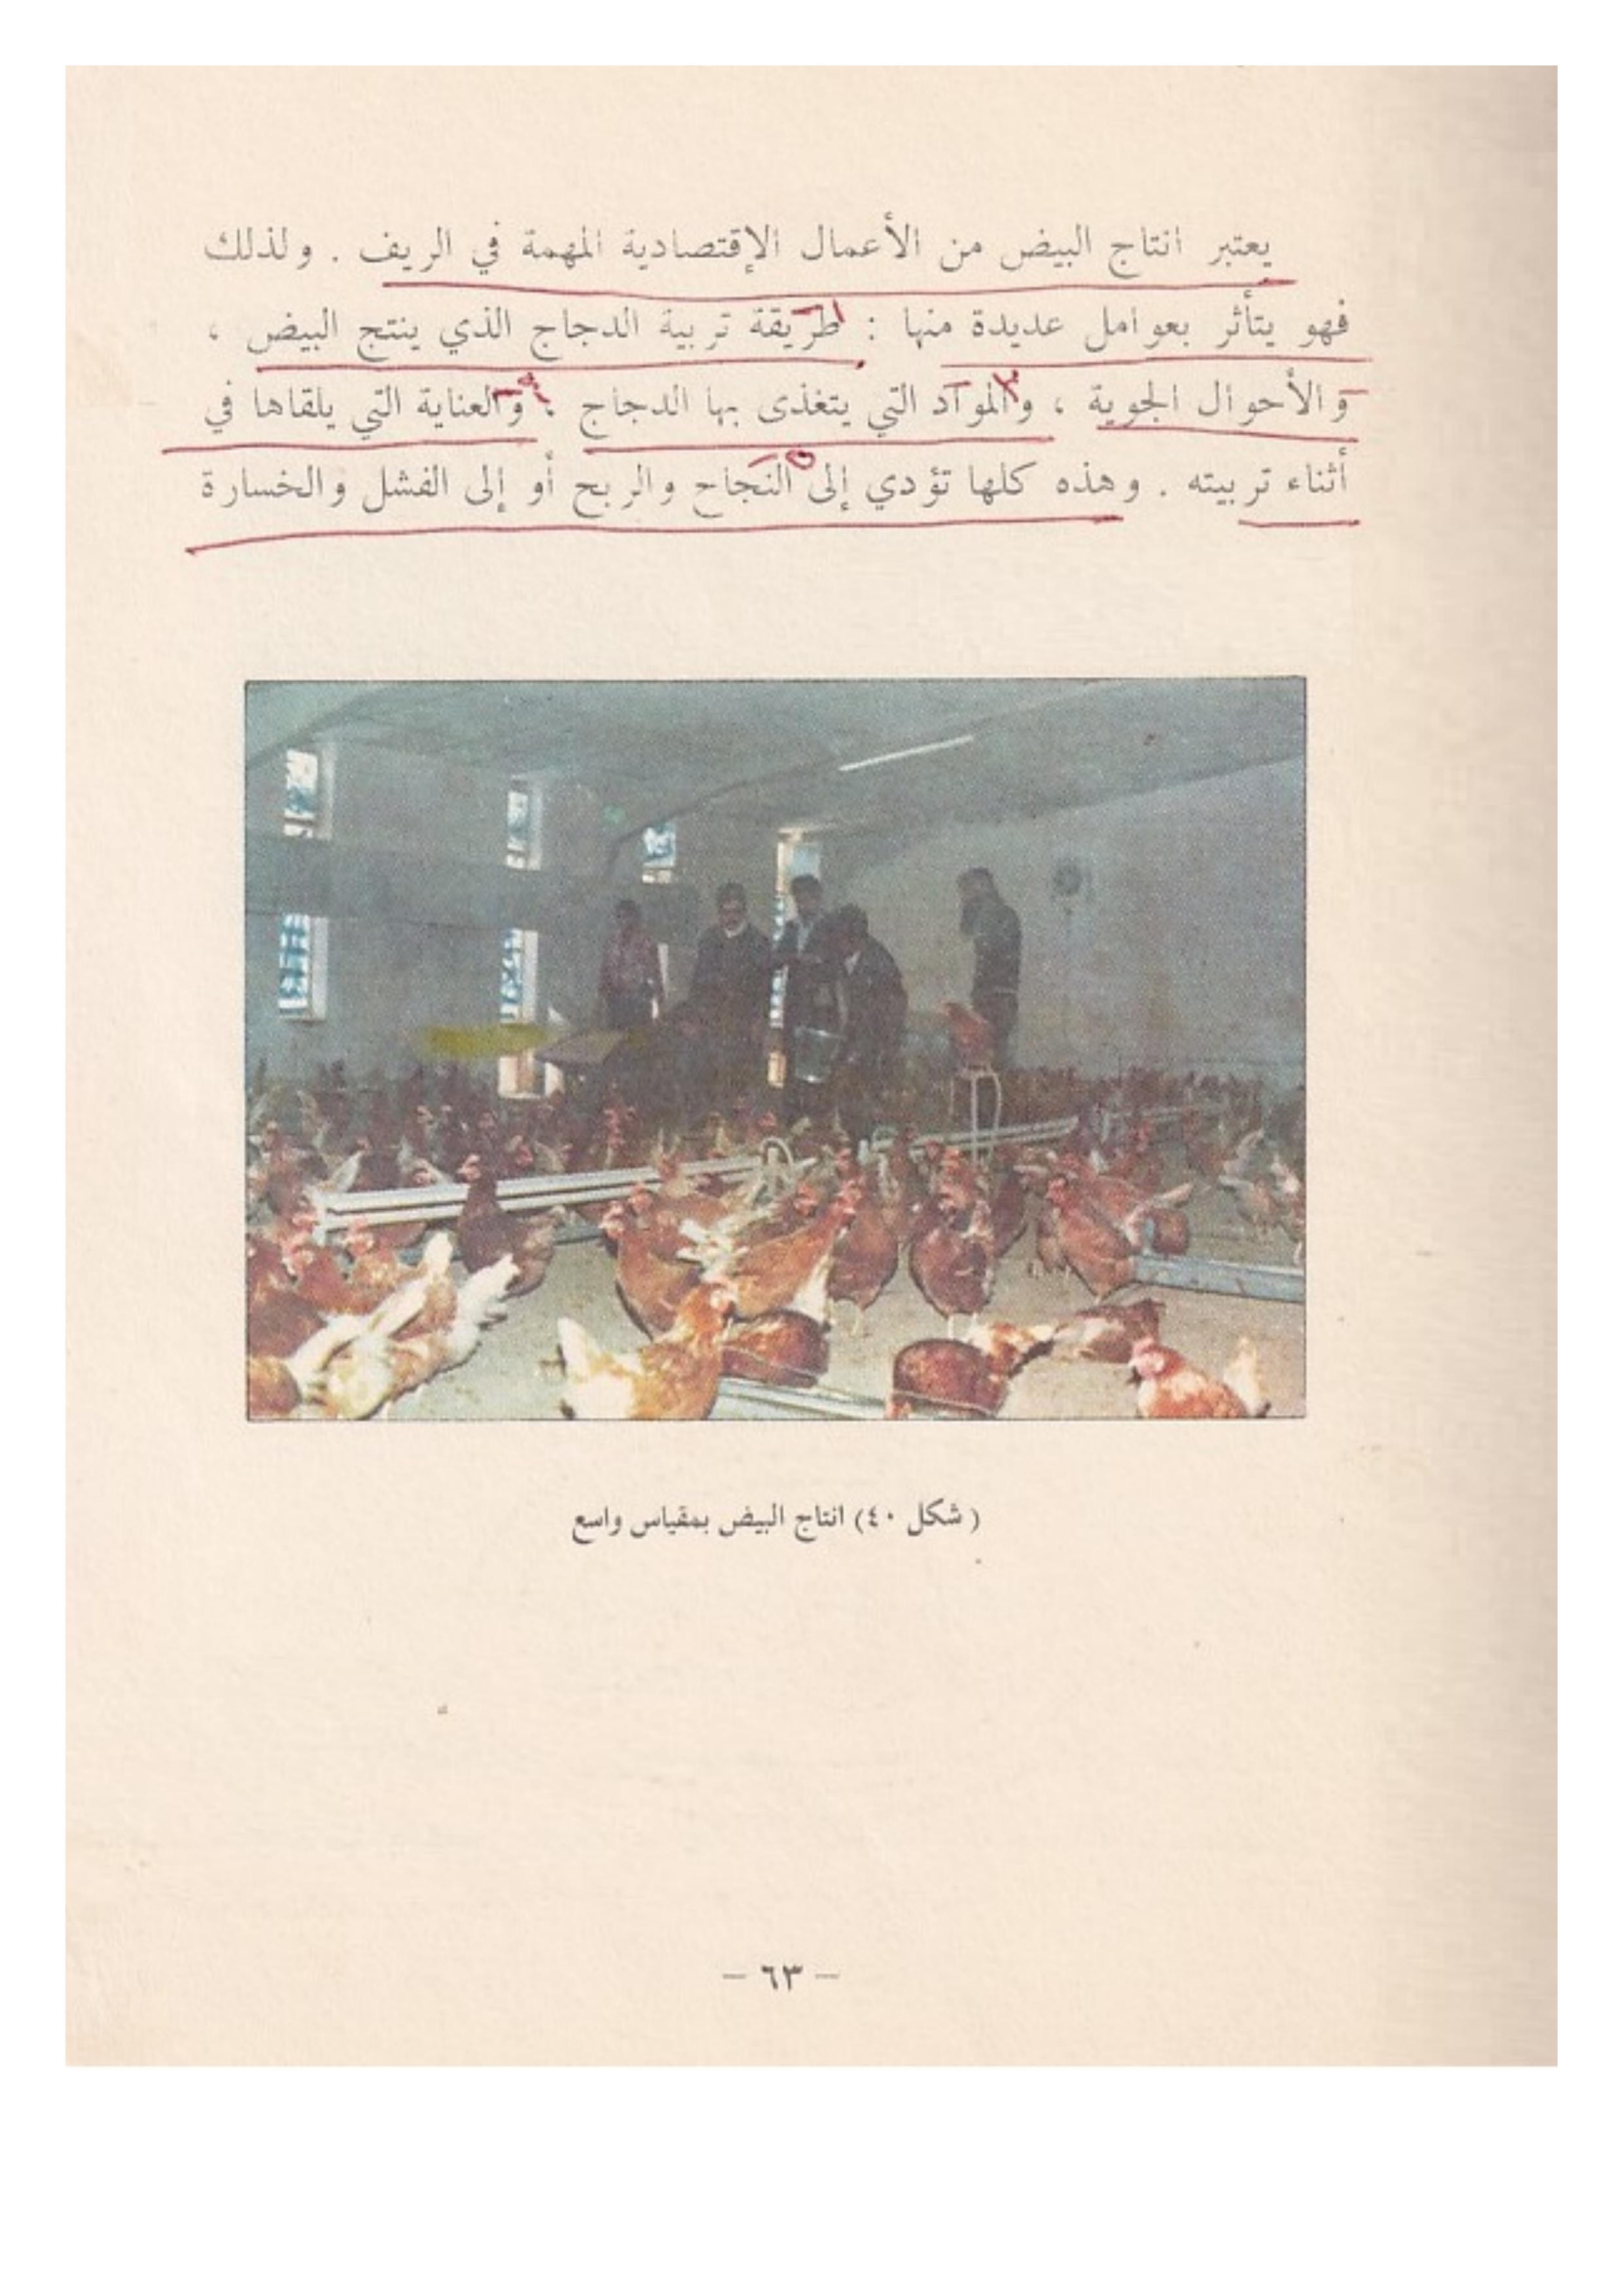 يعتبر انتاج البيض من الأعمال الإقتصادية المهمة في الريف . ولذلك
فهو يتأثر بعوامل عديدة منها : طريقة تربية الدجاج الذي ينتج البيض ،
والأحوال الجوية ، والمواد التي يتغذى بها الدجاج ، والعناية التي يلقاها في
أثناء تربيته . وهذه كلها تؤدي إلى النجاح والربح أو إلى الفشل والخسارة
( شكل ٤٠) انتاج البيض بمقياس واسع
– ٦٣ –